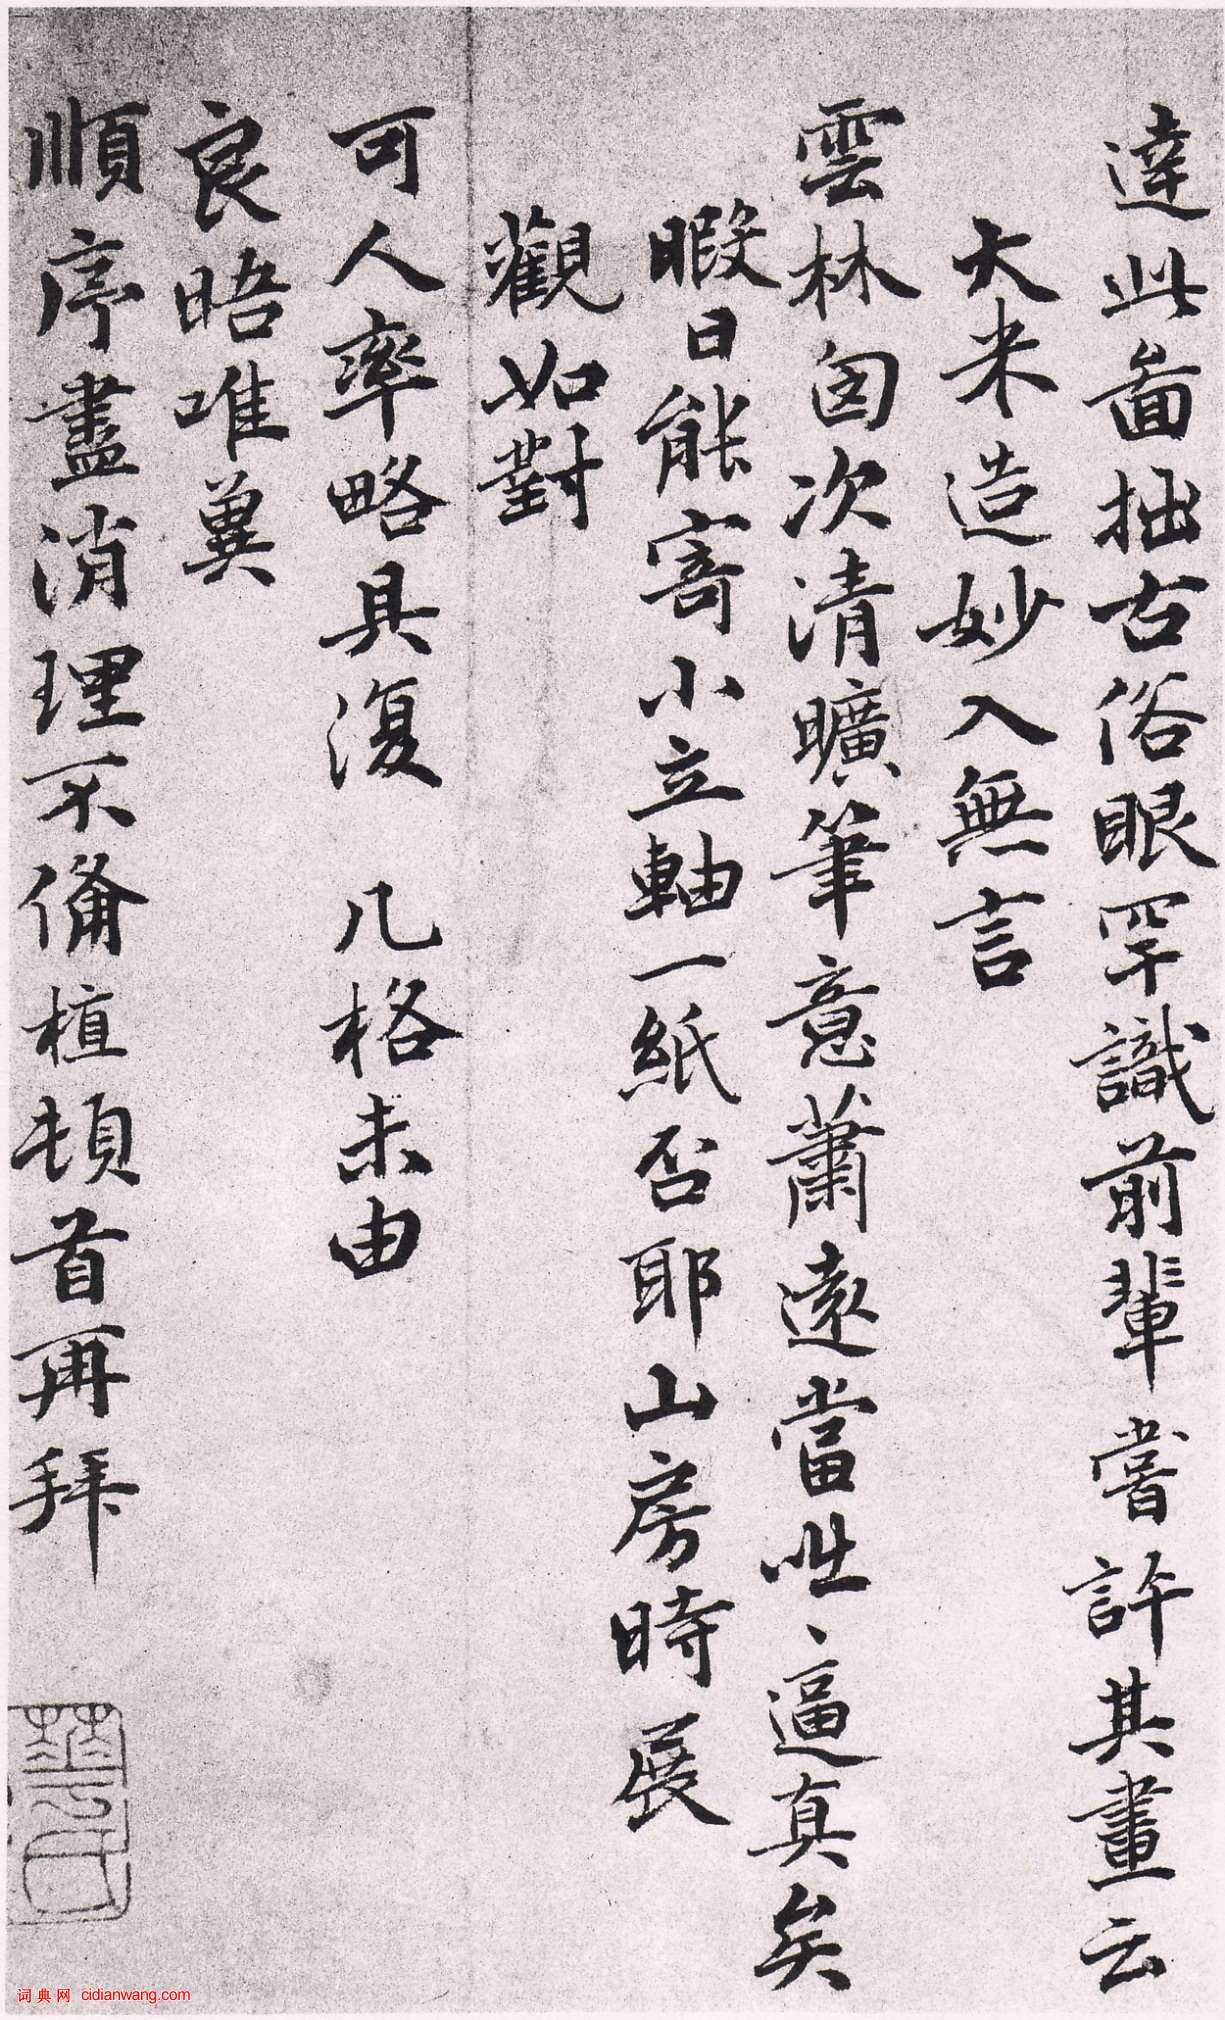 達此畐拙古俗眼罕識前輩嘗許其畫云
大米造妙入無言
雲林囪次清曠筆意蕭遠當咄、逼真矣
暇日能寄小立軸一紙否耶山房時展
觀如對
可人率略具復几格未由
良晤唯冀
順序盡消理不備植頓首再拜
華氏
词典网 cidianwang.com